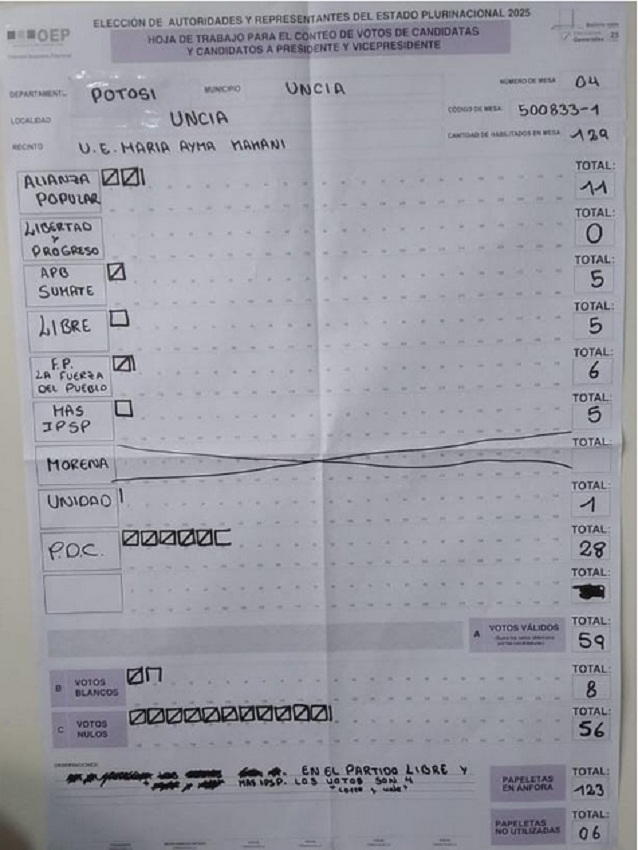 ELECCIÓN DE AUTORIDADES Y REPRESENTANTES DEL ESTADO PLURINACIONAL 2025
OEP
HOJA DE TRABAJO PARA EL CONTEO DE VOTOS DE CANDIDATAS
Y CANDIDATOS A PRESIDENTE Y VICEPRESIDENTE
NÚMERO DE MESA 04
DEPARTAMENT. POTOSI MUNICIPIO UNCIA
CÓDIGO DE MESA: 500833-1
LOCALIDAD UNCIA
CANTIDAD DE HABILITADOS EN MESA 129
RECINTO U.E. MARIA AYMA MAMANI
TOTAL:
ALIANZA
POPULAR 11
TOTAL:
LIBERTAD
Y
PROGRESO 0
TOTAL:
APB
SUMATE 5
TOTAL:
LIBRE 5
TOTAL:
F.P.
LA FUERZA
DEL PUEBLO 6
TOTAL:
MAS
IPSP 5
TOTAL:
MORENA
TOTAL:
UNIDAD 1
TOTAL:
P.D.C. 28
TOTAL:
TOTAL:
A VOTOS VÁLIDOS 59
TOTAL:
B VOTOS
BLANCOS 8
TOTAL:
C VOTOS
NULOS 56
OBSERVACIONES:
EN EL PARTIDO LIBRE Y
MAS IPSP. LOS VOTOS SON 4
"corre y vale"
PAPELETAS
EN ÁNFORA TOTAL:
123
PAPELETAS
NO UTILIZADAS TOTAL:
06